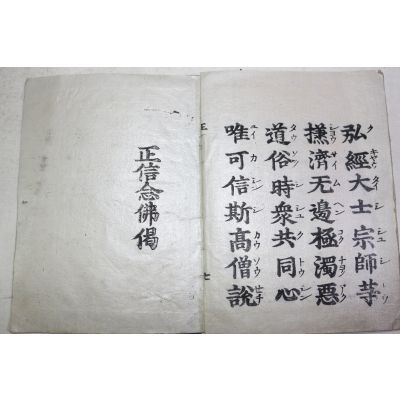 弘經大士宗師䓁
拯濟无邊極濁惡
道俗時衆共同心
唯可信斯高僧說
正信念佛偈